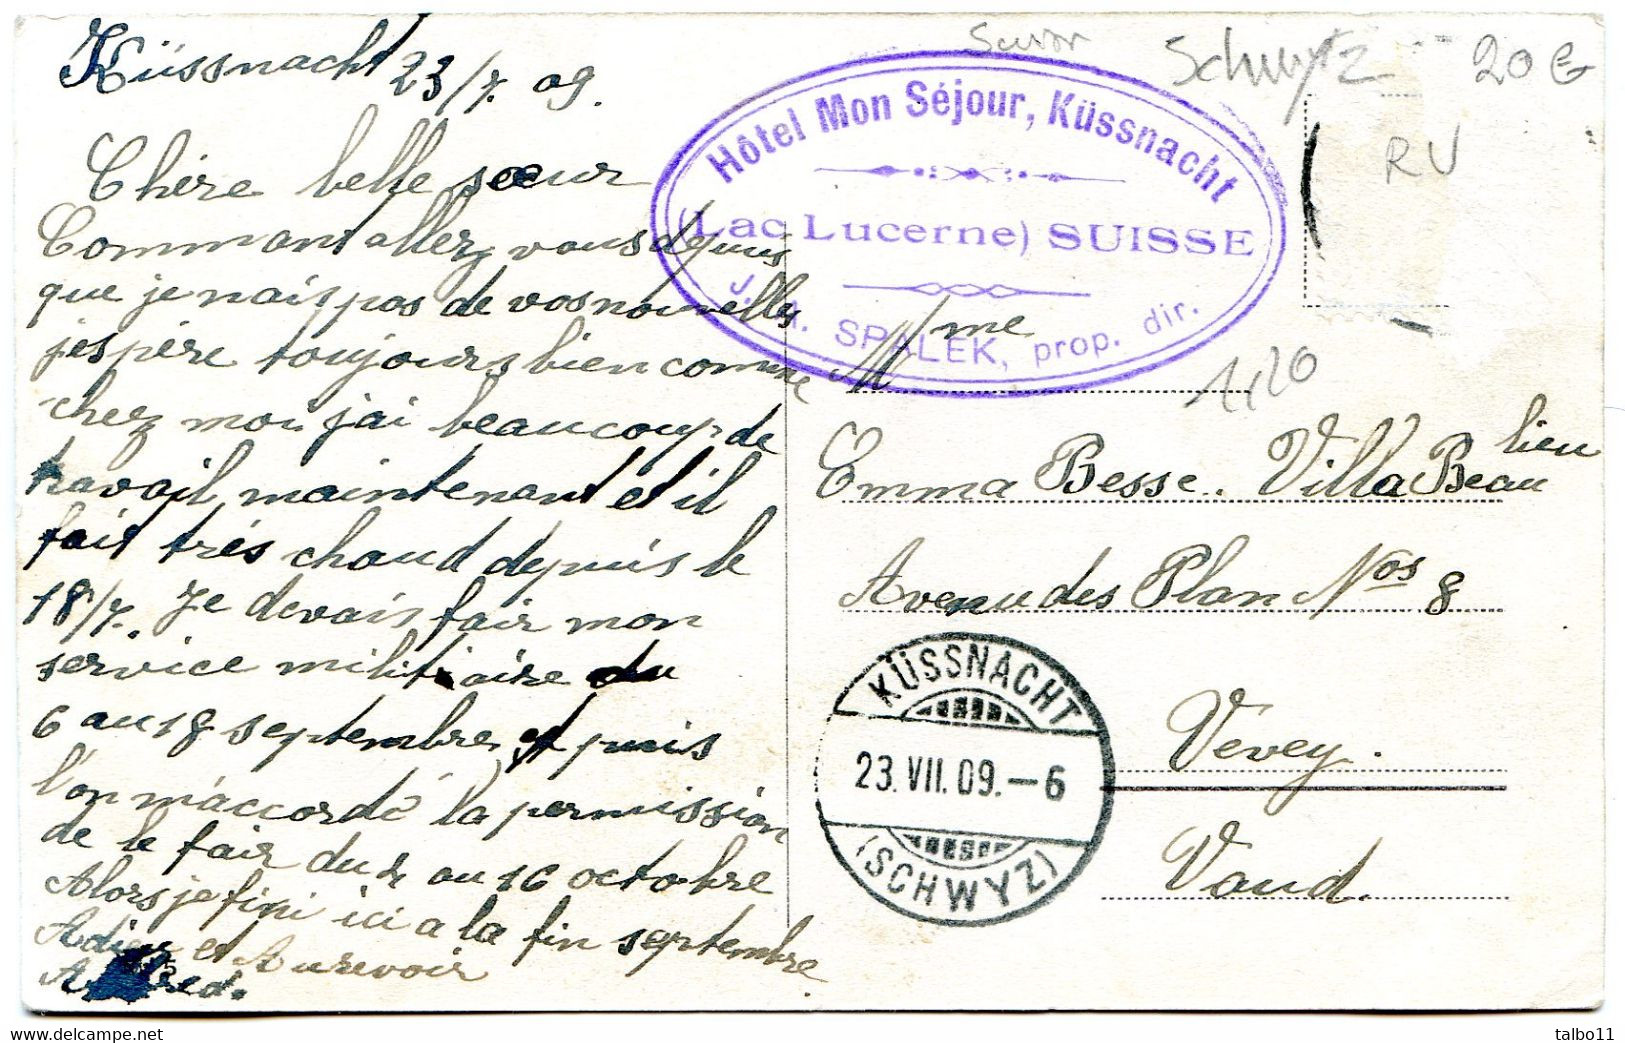 Küssnacht 23/7. 09.
Chère belle sœur
Commant allez vous depuis
que je nais pas de vos nouvelles
j'espère toujours bien comme
chez moi j'ai beaucoup de
travail maintenant et il
fait très chaud depuis le
18/7. Je devais fair mon
service militaire du
6 au 18 septembre et puis
l'on m'accordé la permission
de le fair du 4 au 16 octobre
Alors je fini ici a la fin septembre
Adieu et Aurevoir
A red.
Schwytz 20 €
RV
1,20
Hôtel Mon Séjour, Küssnacht
(Lac Lucerne) SUISSE
SPALEK, prop. dir.
Mme
Emma Besse. Villa Beau lieu
Avenu des Plan Nos 8
Vevey.
Vaud.
KÜSSNACHT
23. VII. 09. – 6
(SCHWYZ)
talbo11